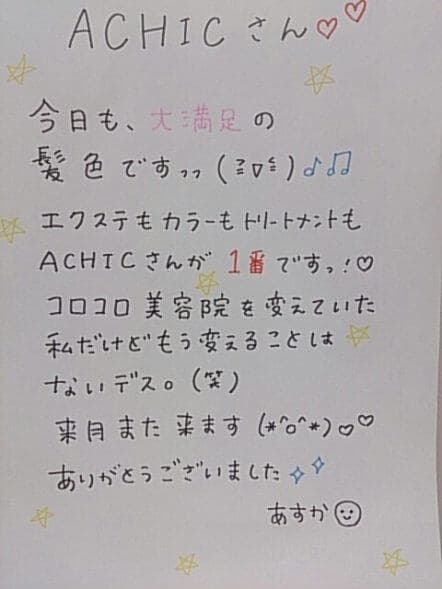 ACHICさん♡♡
今日も、大満足の
髪色ですっっ(ミ∇ミ)♪♫
エクステもカラーもトリートメントも
ACHICさんが1番ですっ!♡
コロコロ美容院を変えていた
私だけどもう変えることは
ないデス。(笑)
来月また来ます(*^o^*)♡♡
ありがとうございました✧✧
あすか☺